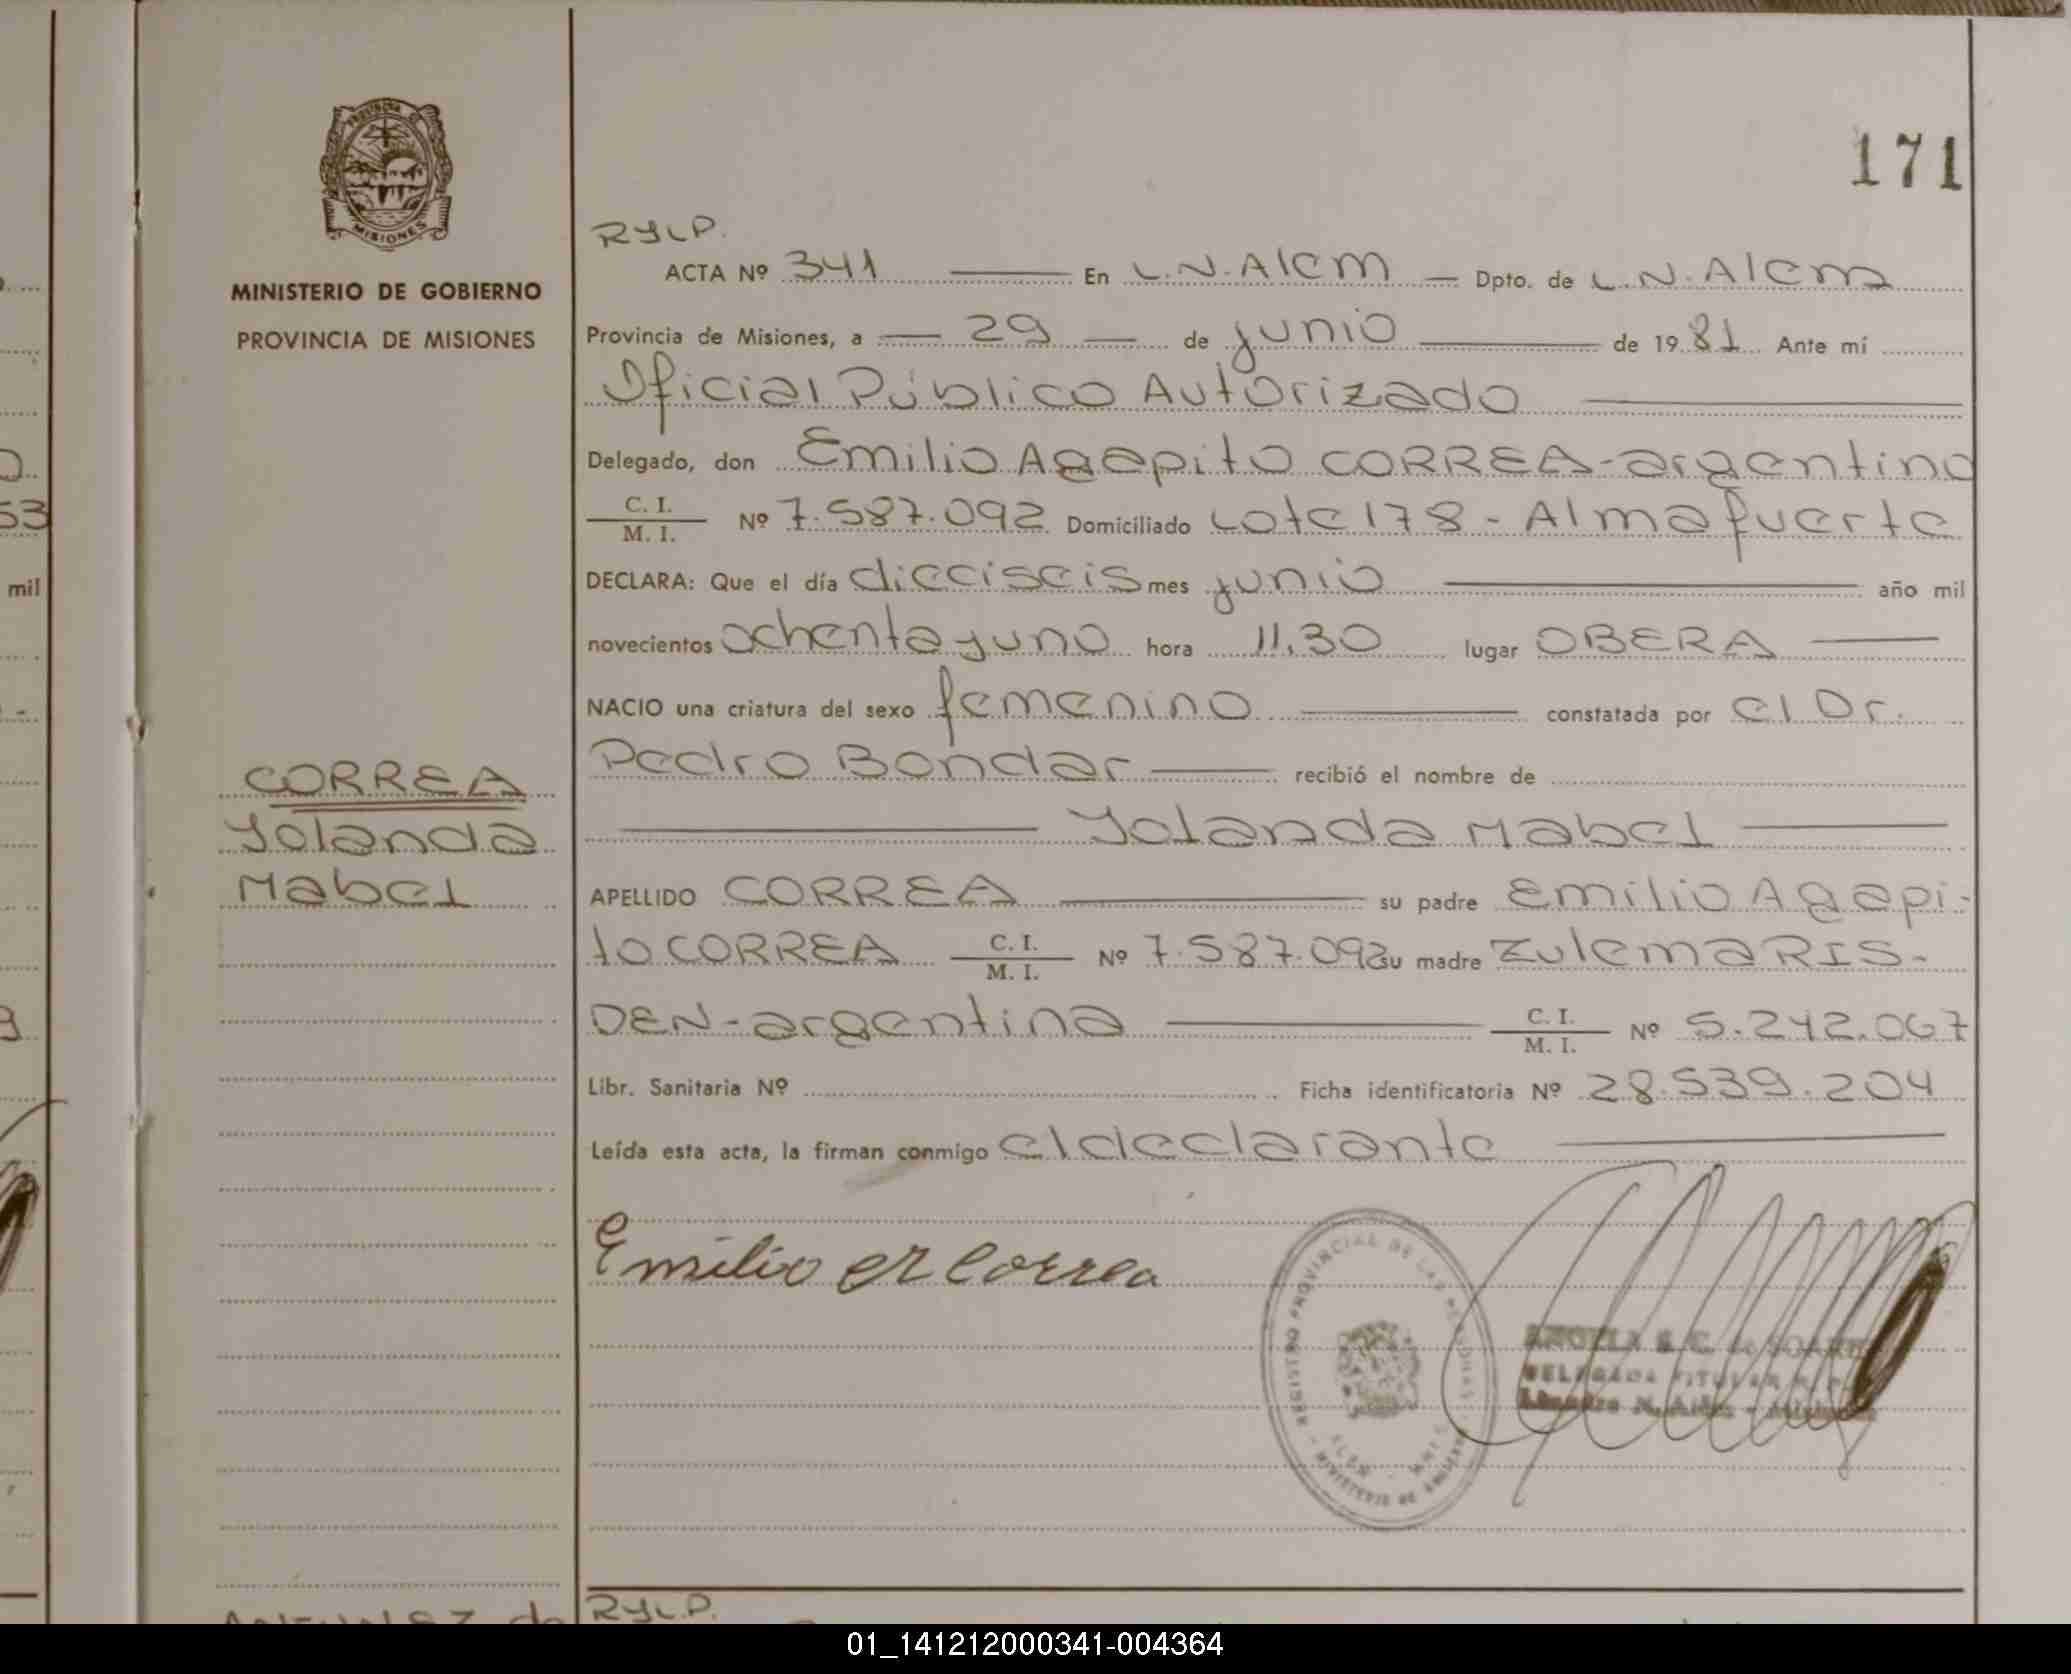 171
PROVINCIA DE
MISIONES
MINISTERIO DE GOBIERNO
PROVINCIA DE MISIONES
CORREA
Yolanda
Mabel
RyLP.
ACTA Nº 341 En L.N. Alem Dpto. de L.N. Alem
Provincia de Misiones, a 29 de junio de 1981 Ante mí
Oficial Público Autorizado
Delegado, don Emilio Agapito CORREA - argentino
C. I.
M. I. Nº 7.587.092 Domiciliado Lote 178 - Almafuerte
DECLARA: Que el día dieciseis mes junio año mil
novecientos ochenta y uno hora 11,30 lugar OBERA
NACIO una criatura del sexo femenino constatada por el Dr.
Pedro Bondar recibió el nombre de
Yolanda Mabel
APELLIDO CORREA su padre Emilio Agapi-
to CORREA C. I. M. I. Nº 7.587.092 su madre Zulema RIS-
DEN - argentina C. I. M. I. Nº 5.242.067
Libr. Sanitaria Nº Ficha identificatoria Nº 28.539.204
Leída esta acta, la firman conmigo el declarante
Emilio Correa
REGISTRO PROVINCIAL DE LAS PERSONAS
MINISTERIO DE GOBIERNO
ALEM
ANGELA S. C. de SOARES
DELEGADA TITULAR
Leandro N. Alem - Misiones
RyL.P.
mil
53
01_141212000341-004364